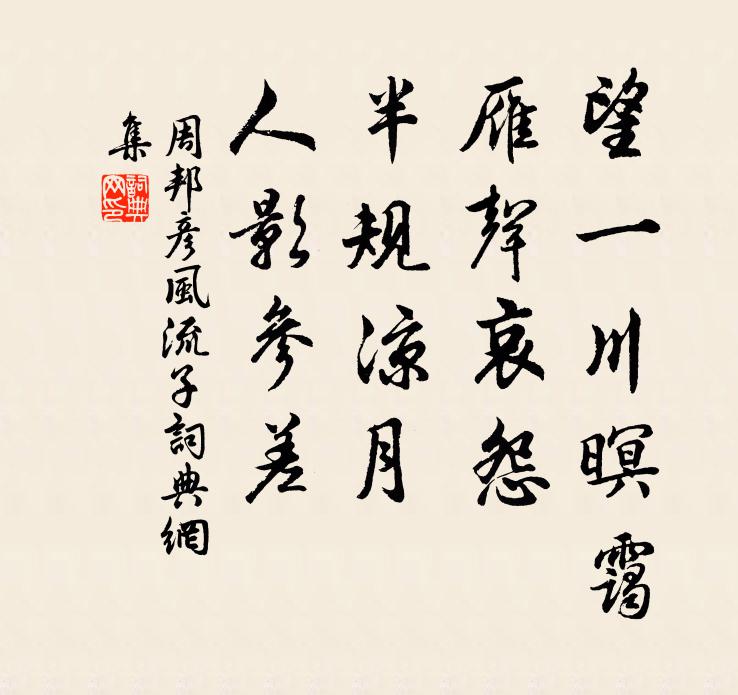 望一川暝靄
雁聲哀怨
半規涼月
人影參差
周邦彥風流子詞典網
集
詞典網印